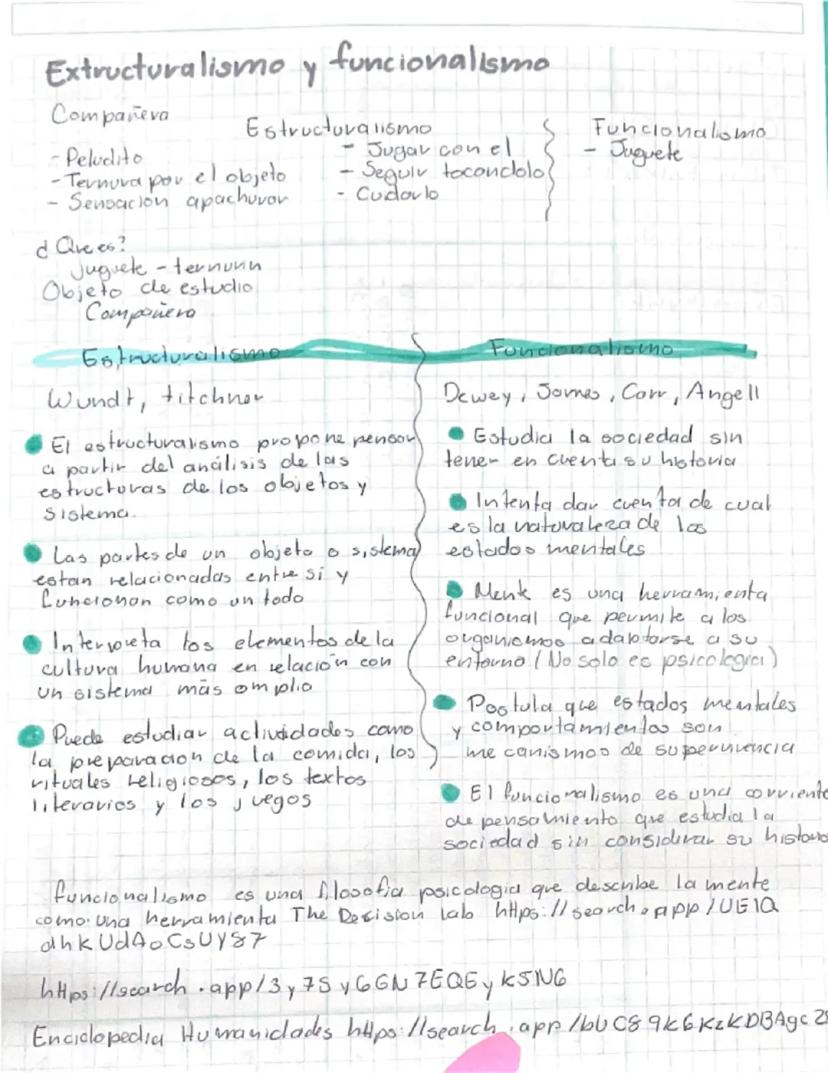 Extructuralismo y funcionalismo
Compañera
- Peludito
- Ternura por el objeto
- Sensación apachurar
Estructuralismo
- Jugar con el
- Seguir tocandolo
- Cuidarlo
Funcionalismo
- Juguete
¿Que es?
Juguete - ternurin
Objeto de estudio
Compañera
Estructuralismo
Wundt, titchner
El estructuralismo propone pensar
a partir del análisis de las
estructuras de los objetos y
sistema.
Las partes de un objeto o sistema
estan relacionadas entre si y
funcionan como un todo
Interpreta los elementos de la
cultura humana en relación con
un sistema más amplio
Puede estudiar actividades como
la preparacion de la comida, los
rituales religiosos, los textos
literarios y los juegos
Funcionalismo
Dewey, James, Carr, Angell
Estudia la sociedad sin
tener en cuenta su historia
Intenta dar cuenta de cual
es la naturaleza de los
estados mentales
Mente es una herramienta
funcional que permite a los
organismos adaptarse a su
entorno (No solo es psicologia)
Postula que estados mentales
y comportamientos son
mecanismos de supervivencia
El funcionalismo es una corriente
de pensamiento que estudia la
sociedad sin considerar su historia
funcionalismo es una filosofia psicologia que describe la mente
como: una herramienta The Decision Lab https://search.app/UE1Q
dhkUdAoCsUYS7
https://search.app/3y7SyGGN7EQEyK5NG
Enciclopedia Humanidades https://search.app/bUC89k6KzKDBAgc2